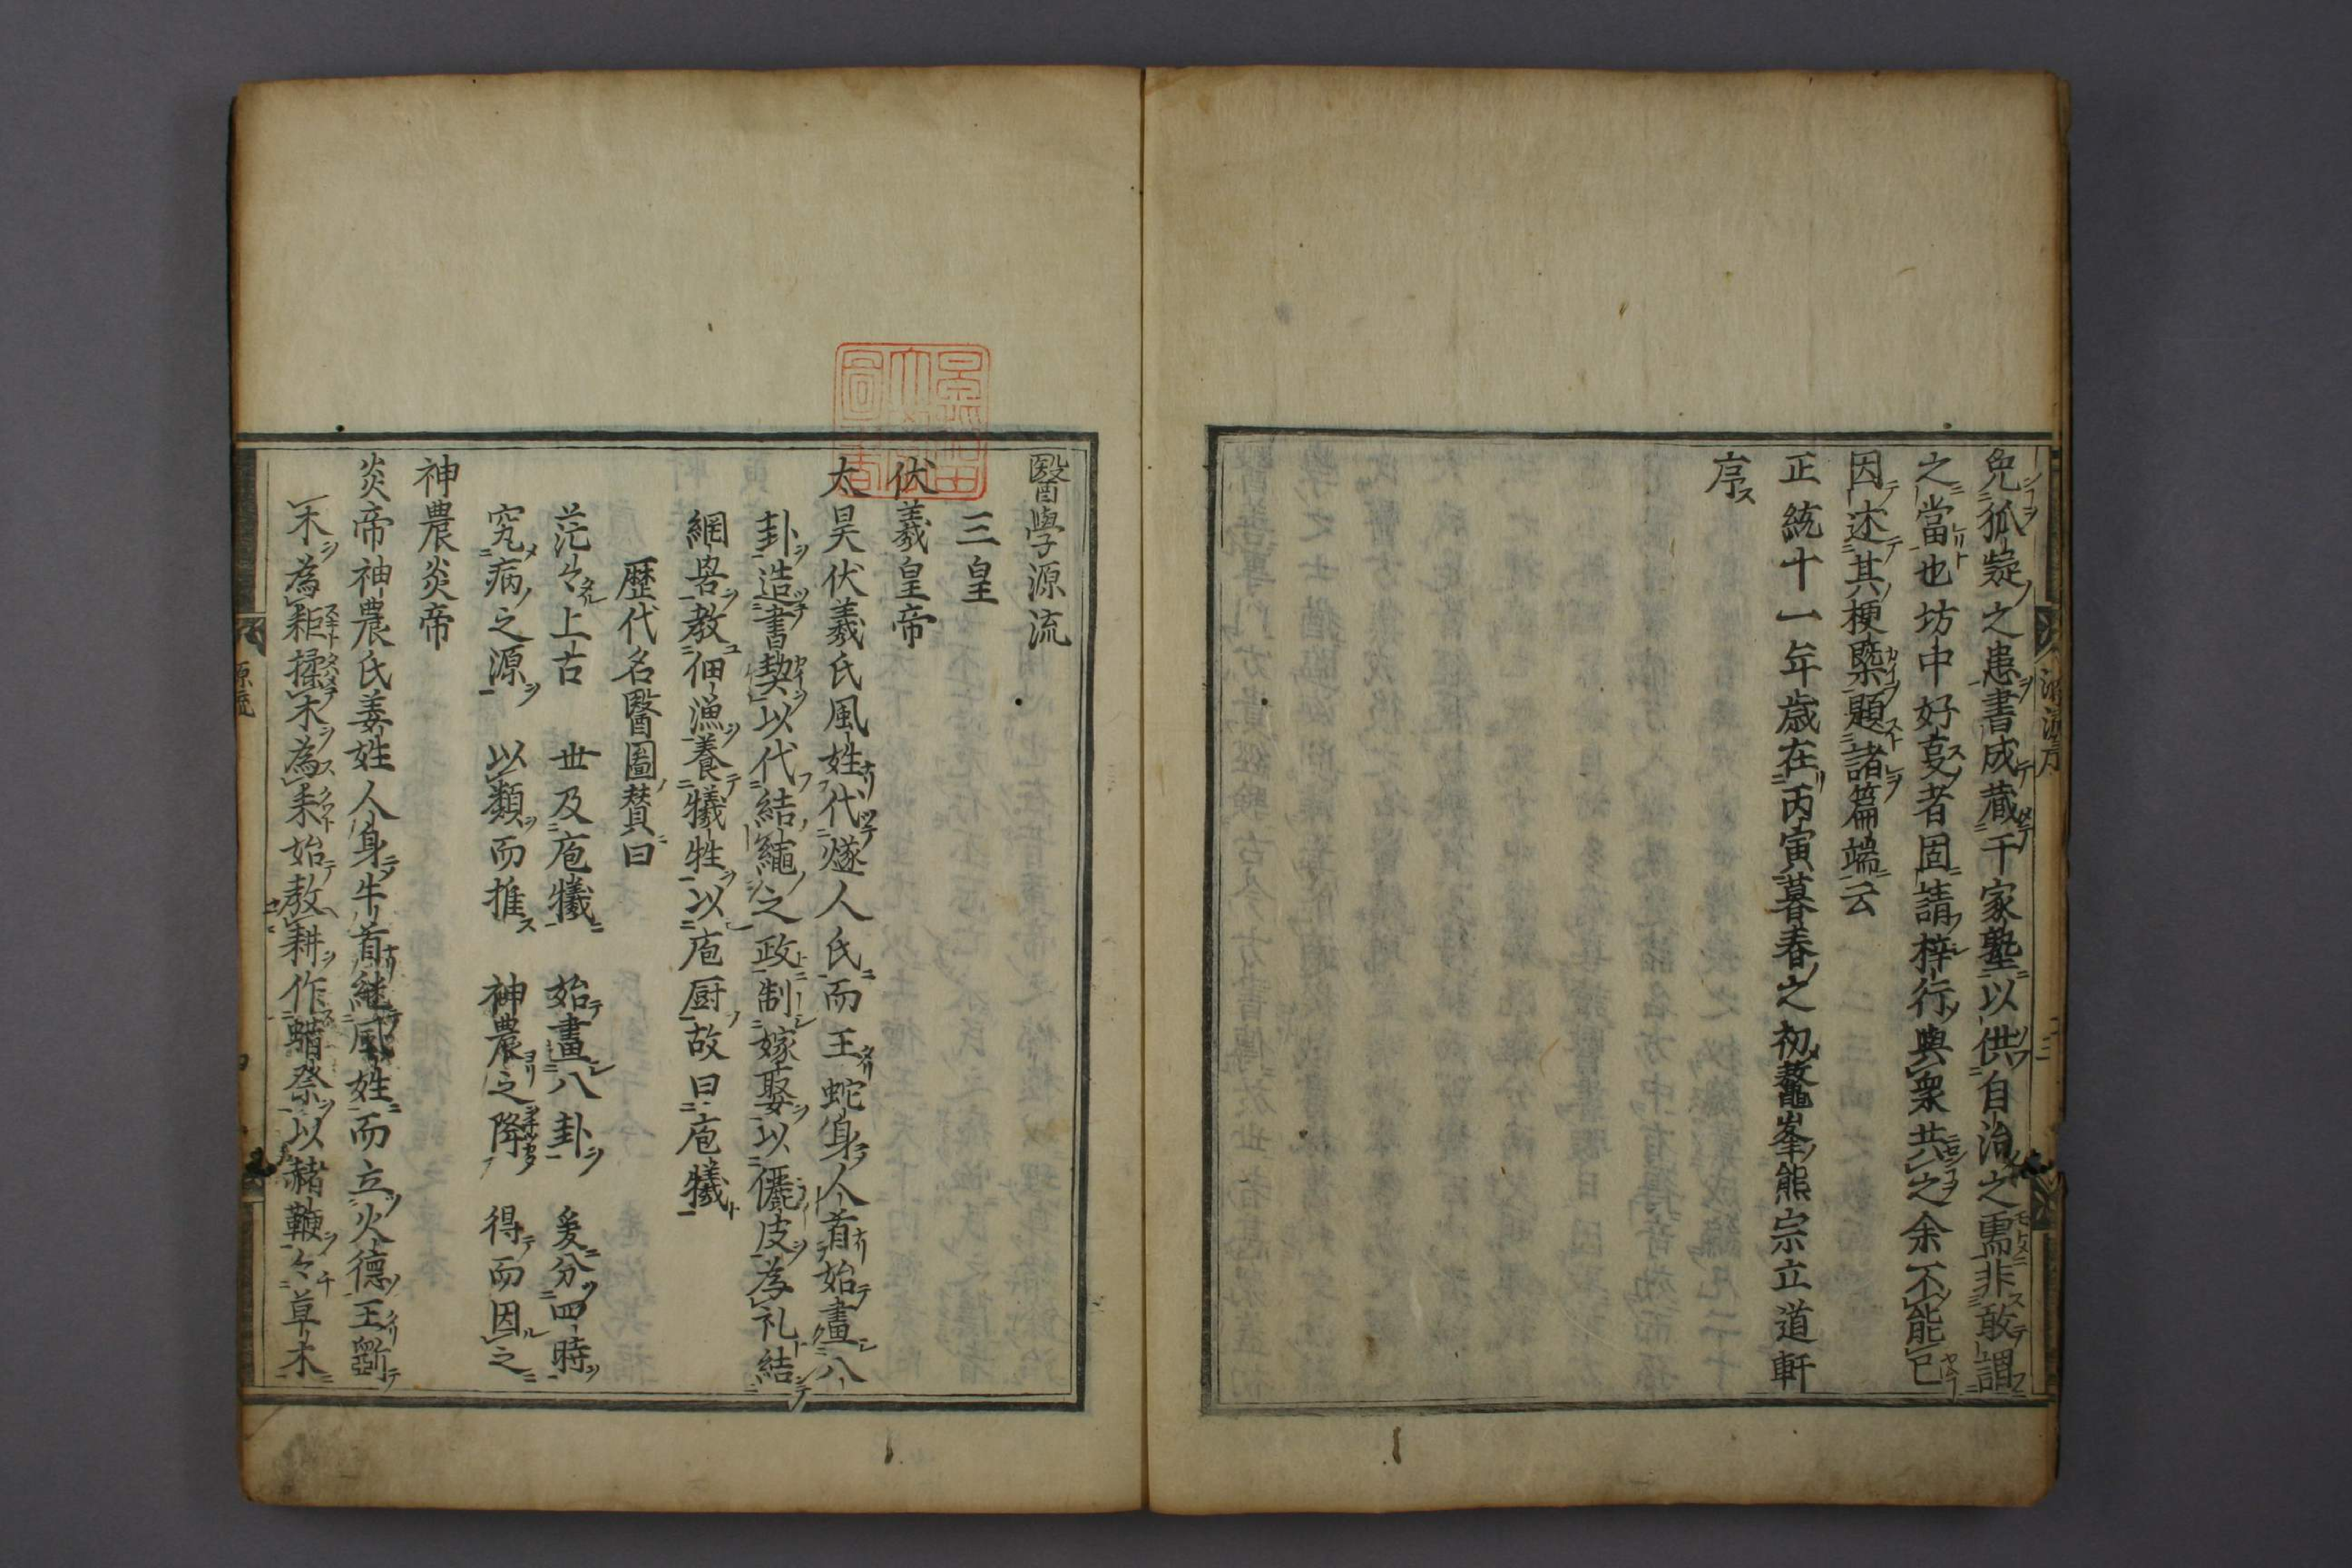 免狐疑之患書成蔵千家塾以供自治之需非敢謂
之當也坊中好㕝者固請梓行與衆共之余不能已
因述其梗槩題諸篇端云
正統十一年歳在丙寅暮春之初鼇峯熊宗立道軒
序
醫學源流
三皇
伏羲皇帝
太昊伏羲氏風姓代燧人氏而王蛇身人首始畫八
卦造書契以代結繩之政制嫁娶以儷皮為礼結
網罟教佃漁養犧牲以庖厨故曰庖犧
歴代名醫圖賛曰
茫々上古 世及庖犧 始畫八卦 爰分四時
究病之源 以類而推 神農之降 得而因之
神農炎帝
炎帝神農氏姜姓人身牛首継風姓而立火德王斵
木為耜揉木為耒始教耕作蜡祭以赭鞭々草木
源流